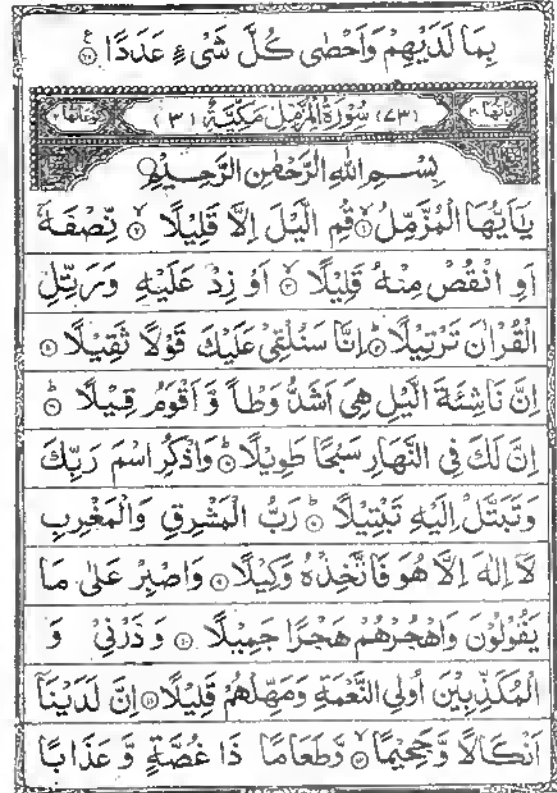 بِمَا لَدَيْهِمْ وَاَحْصٰى كُلَّ شَىْءٍ عَدَدًا ۝۲۸
اٰيَاتُهَا ۲۰ (۷۳) سُوْرَةُ الْمُزَّمِّلِ مَكِّيَّةٌ (۳) رُكُوْعَاتُهَا ۲
بِسْمِ اللهِ الرَّحْمٰنِ الرَّحِيْمِ
يٰۤاَيُّهَا الْمُزَّمِّلُ ۝۱ قُمِ الَّيْلَ اِلَّا قَلِيْلًا ۝۲ نِّصْفَهٗۤ
اَوِ انْقُصْ مِنْهُ قَلِيْلًا ۝۳ اَوْ زِدْ عَلَيْهِ وَرَتِّلِ
الْقُرْاٰنَ تَرْتِيْلًا ۝۴ اِنَّا سَنُلْقِيْ عَلَيْكَ قَوْلًا ثَقِيْلًا ۝۵
اِنَّ نَاشِئَةَ الَّيْلِ هِيَ اَشَدُّ وَطْاً وَّ اَقْوَمُ قِيْلًا ۝۶
اِنَّ لَكَ فِي النَّهَارِ سَبْحًا طَوِيْلًا ۝۷ وَاذْكُرِ اسْمَ رَبِّكَ
وَتَبَتَّلْ اِلَيْهِ تَبْتِيْلًا ۝۸ رَبُّ الْمَشْرِقِ وَالْمَغْرِبِ
لَاۤ اِلٰهَ اِلَّا هُوَ فَاتَّخِذْهُ وَكِيْلًا ۝۹ وَاصْبِرْ عَلٰى مَا
يَقُوْلُوْنَ وَاهْجُرْهُمْ هَجْرًا جَمِيْلًا ۝۱۰ وَذَرْنِيْ وَ
الْمُكَذِّبِيْنَ اُولِي النَّعْمَةِ وَمَهِّلْهُمْ قَلِيْلًا ۝۱۱ اِنَّ لَدَيْنَاۤ
اَنْكَالًا وَّ جَحِيْمًا ۝۱۲ وَّطَعَامًا ذَا غُصَّةٍ وَّ عَذَابًا